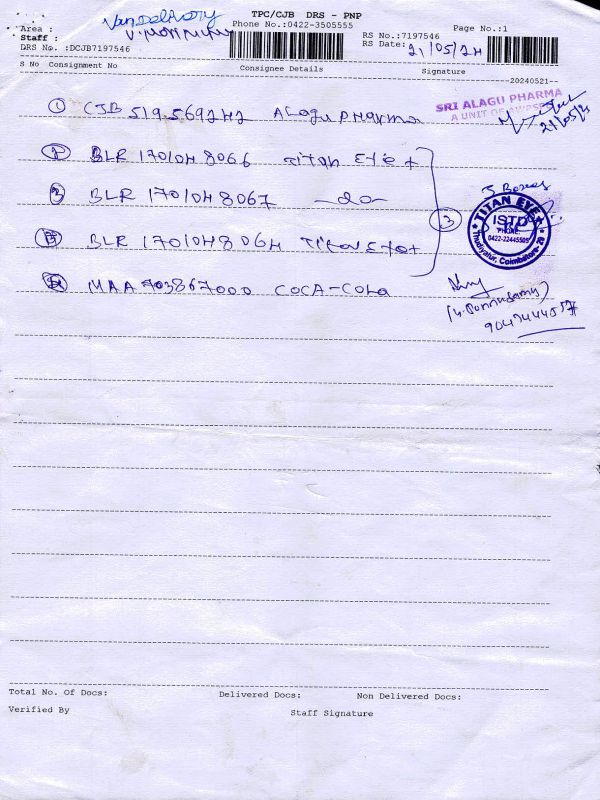 Van Delivery
TPC/CJB DRS - PNP
Area :
Phone No.:0422-3505555
Page No.:1
Staff :
RS No.:7197546
DRS No. :DCJB7197546
RS Date: 21/05/24
S No Consignment No Consignee Details Signature
--20240521--
① CJB 519569242 Alagu Pharma
SRI ALAGU PHARMA
A UNIT OF
21/05/24
② BLR 170104 8066 Titan Eye+
3 Boxes
③ BLR 170104 8067 -do-
③
TITAN EYE+
ISTD
PHONE:
0422-22445505
Thudiyalur, Coimbatore
BLR 170104 8064 Titan Eye+
MAA 703867000 COCA-Cola
(V. Ponnusamy)
Total No. Of Docs: Delivered Docs: Non Delivered Docs:
Verified By Staff Signature